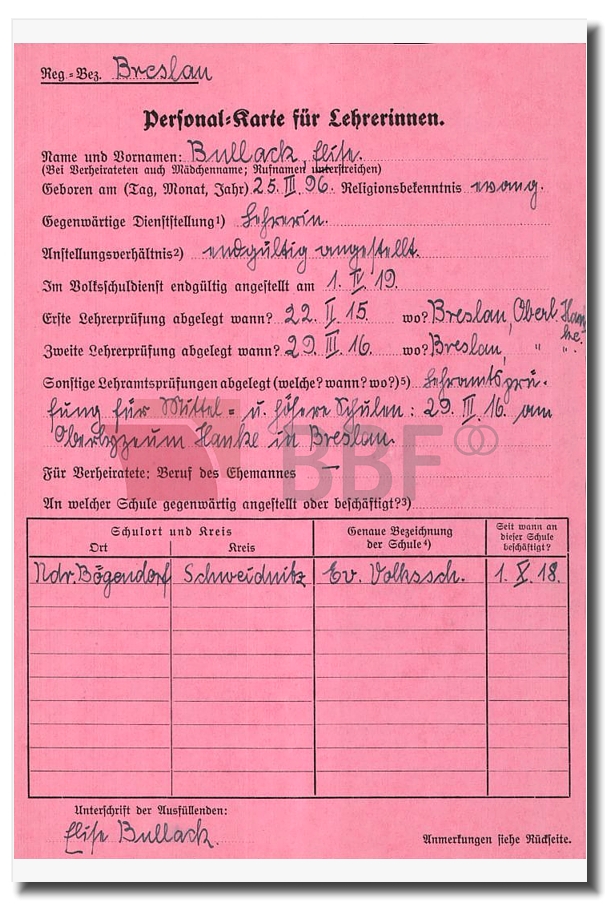 Reg.-Bez. Breslau
Personal-Karte für Lehrerinnen.
Name und Vornamen: Bullack, Elise.
(Bei Verheirateten auch Mädchenname; Rufnamen unterstreichen)
Geboren am (Tag, Monat, Jahr) 25. III. 96. Religionsbekenntnis evang.
Gegenwärtige Dienststellung¹) Lehrerin.
Anstellungsverhältnis²) endgültig angestellt.
Im Volksschuldienst endgültig angestellt am 1. IV. 19.
Erste Lehrerprüfung abgelegt wann? 22. II. 15. wo? Breslau, Oberl. Hanke.
Zweite Lehrerprüfung abgelegt wann? 29. III. 16. wo? Breslau, " ".
Sonstige Lehramtsprüfungen abgelegt (welche? wann? wo?)⁵) Lehramtsprü-
fung für Mittel- u. höhere Schulen: 29. III. 16. am
Oberlyzeum Hanke in Breslau.
Für Verheiratete: Beruf des Ehemannes —
BBF
An welcher Schule gegenwärtig angestellt oder beschäftigt?³)
Schulort und Kreis Genaue Bezeichnung der Schule⁴) Seit wann an dieser Schule beschäftigt?
Ort Kreis
Ndr. Bögendorf Schweidnitz Ev. Volkssch. 1. X. 18.
Unterschrift der Ausfüllenden:
Elise Bullack.
Anmerkungen siehe Rückseite.